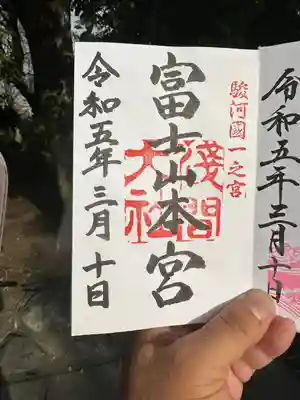 駿河國一之宮
富士山本宮
淺間
大社
令和五年三月十日
令和五年三月十日